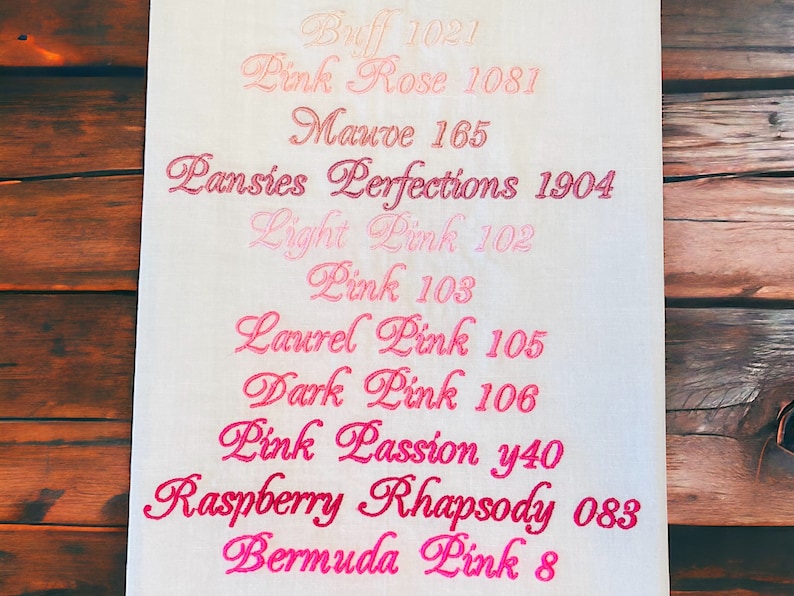 Buff 1021
Pink Rose 1081
Mauve 165
Pansies Perfections 1904
Light Pink 102
Pink 103
Laurel Pink 105
Dark Pink 106
Pink Passion y40
Raspberry Rhapsody 083
Bermuda Pink 8